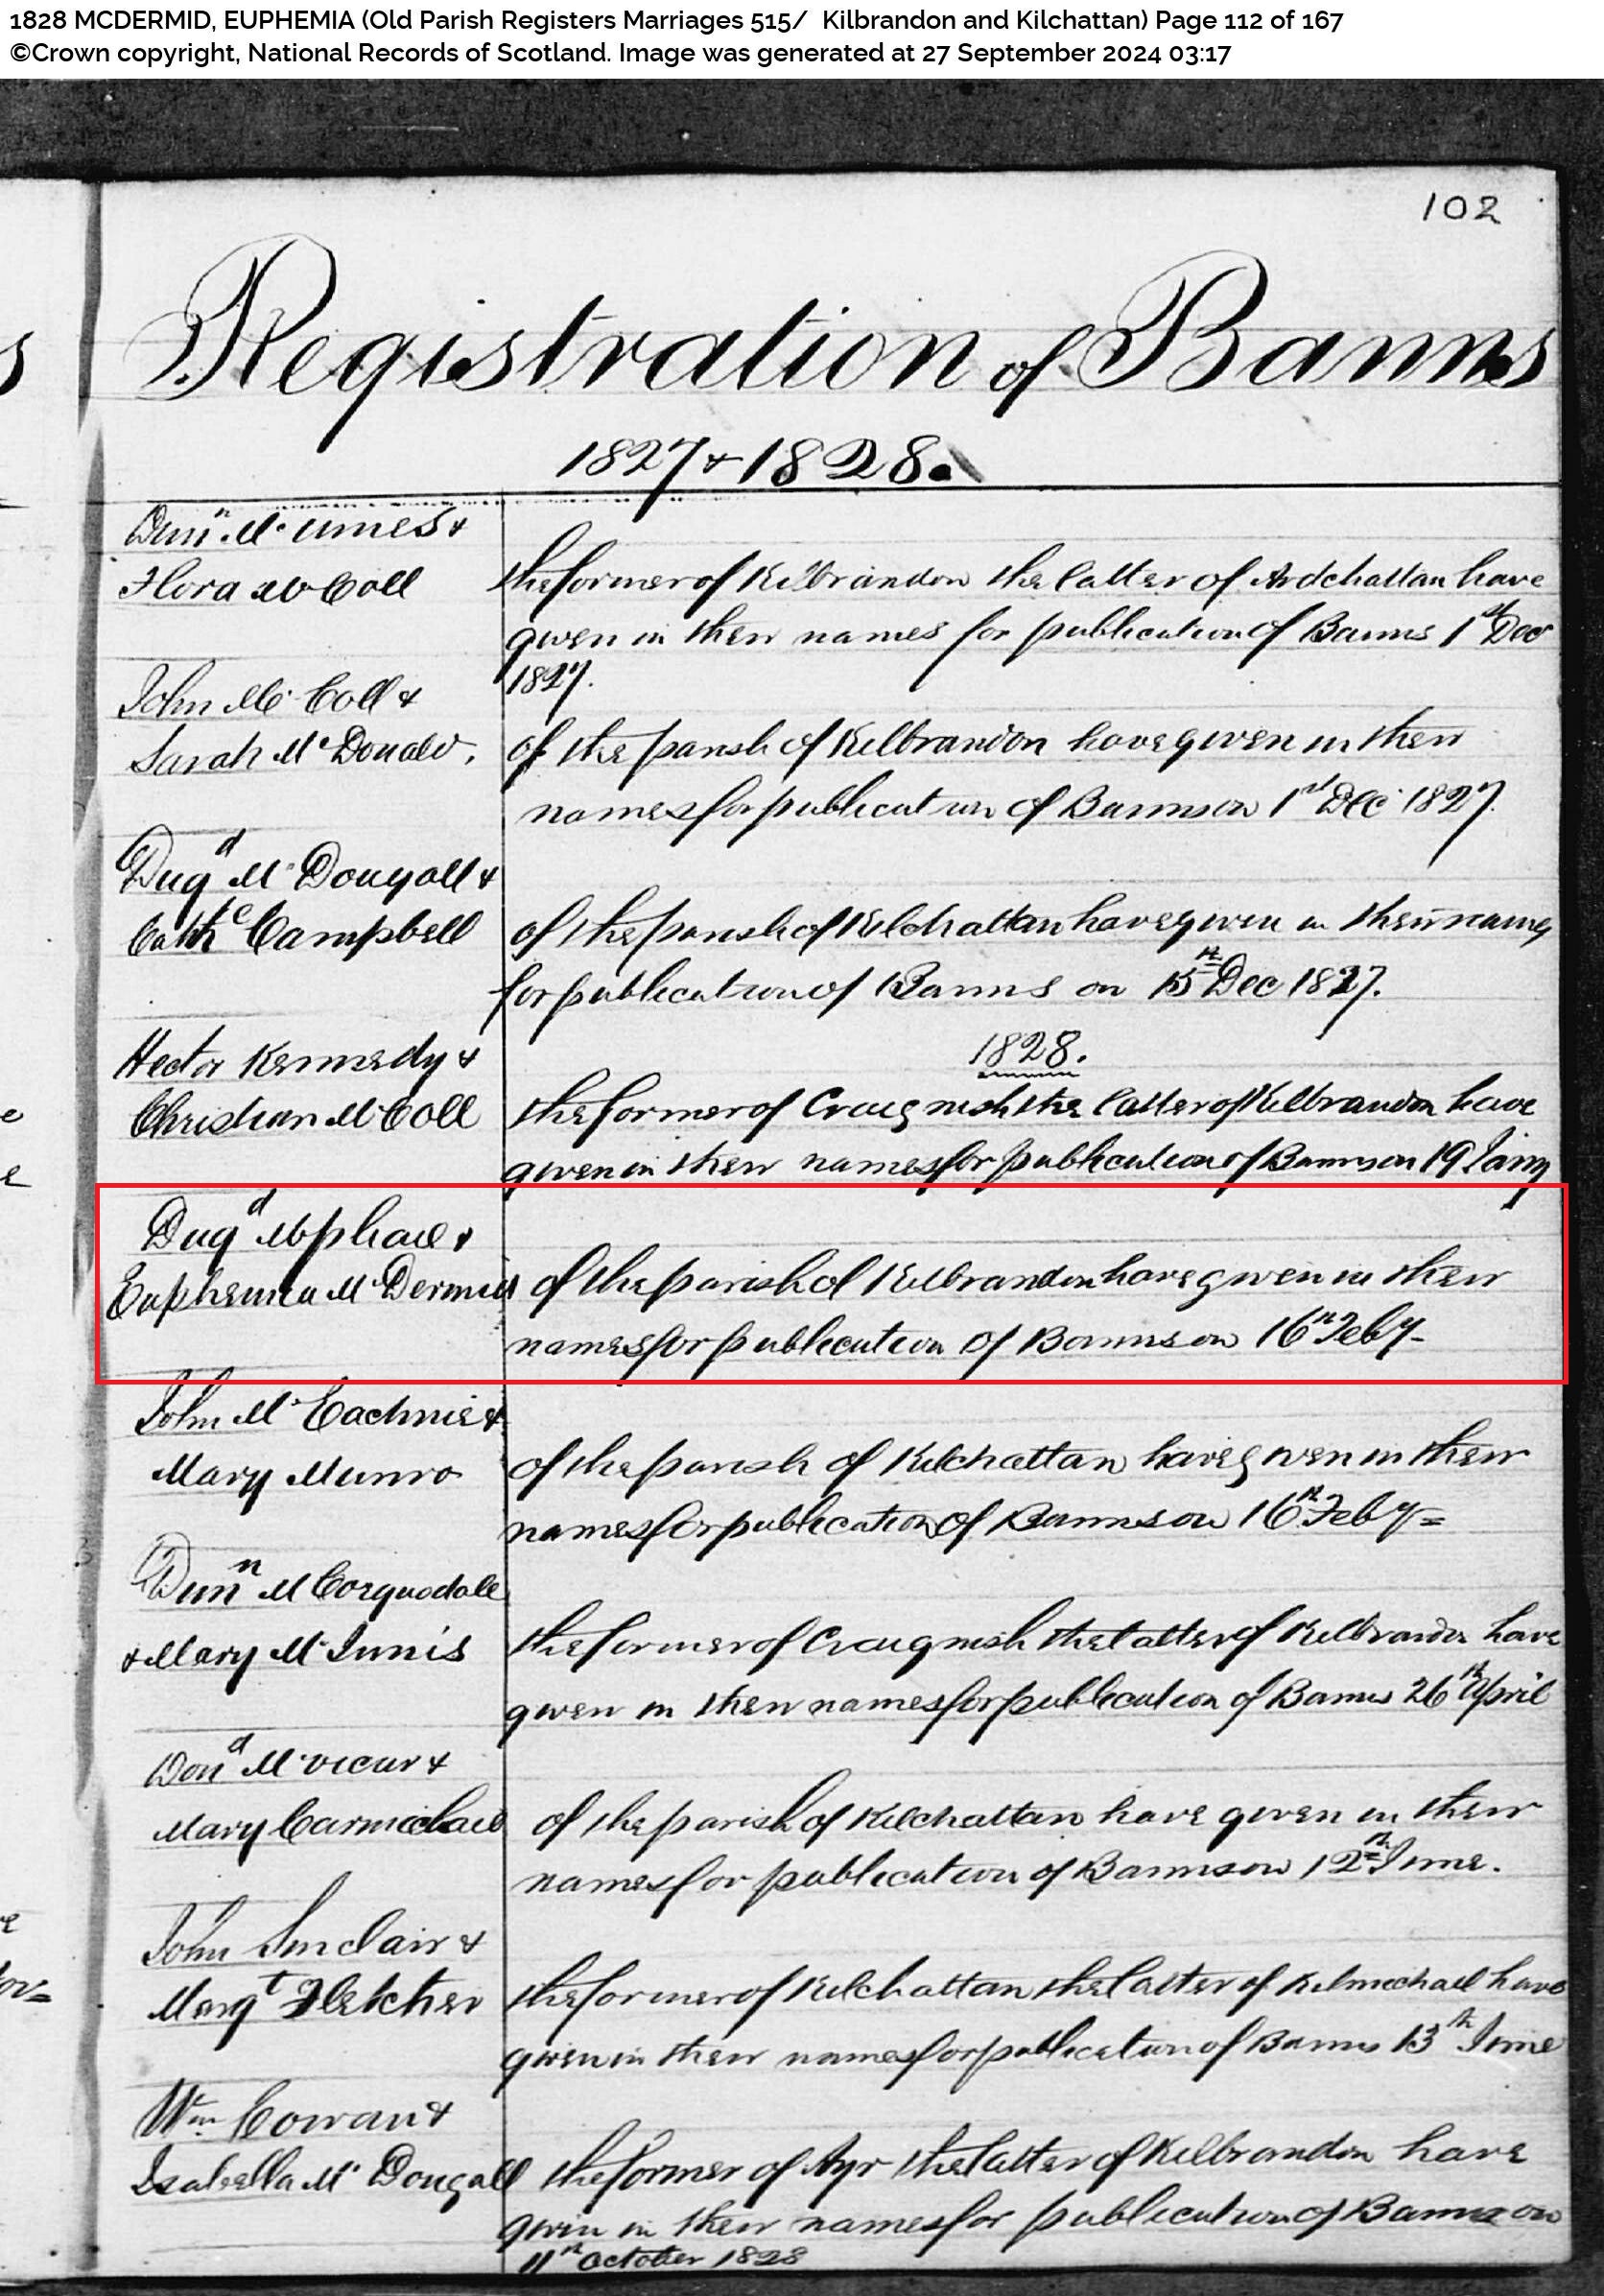 1828 MCDERMID, EUPHEMIA (Old Parish Registers Marriages 515/ Kilbrandon and Kilchattan) Page 112 of 167
©Crown copyright, National Records of Scotland. Image was generated at 27 September 2024 03:17
102
Registration of Banns
1827 & 1828.
Dunn. Mc &
Flora McColl the former of Kilbrandon the latter of Ardchattan have
given in their names for publication of Banns 1st Decr
1827.
John Mc Coll &
Sarah McDonald. of the parish of Kilbrandon have given in their
names for publication of Banns on 1st Dec 1827.
Dugd McDougall &
Cathe Campbell of the parish of Kilchattan have given in their names
for publication of Banns on 15th Dec 1827.
1828.
Hector Kennedy &
Christian McColl the former of Craignish the latter of Kilbrandon have
given in their names for publication of Banns on 19 Jany
Dugd Mcphail &
Euphemia McDermid of the parish of Kilbrandon have given in their
names for publication of Banns on 16th Feby
John McEachnie &
Mary Munro of the parish of Kilchattan have given in their
names for publication of Banns on 16th Feby
Dunn McCorquodale
& Mary McInnis the former of Craignish the latter of Kilbrandon have
given in their names for publication of Banns 26th April
Dond Mcvicar &
Mary Carmichael of the parish of Kilchattan have given in their
names for publication of Banns on 12th June.
John Sinclair &
Margt Fletcher the former of Kilchattan the latter of Kilmichael have
given in their names for publication of Banns 13th June
Wm. Cowan &
Isabella McDougall the former of Ayr the latter of Kilbrandon have
given in their names for publication of Banns on
11th October 1828